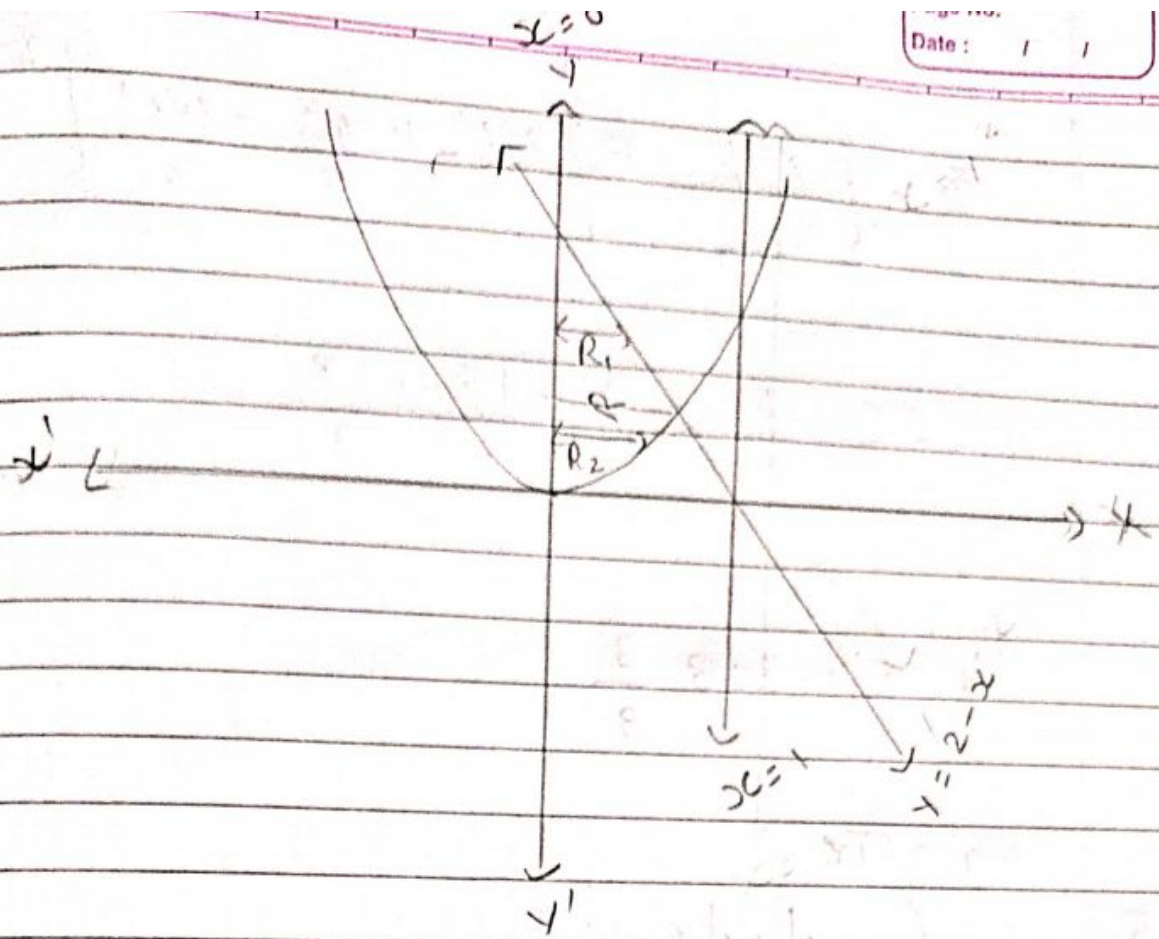 Page No.
Date : / /
x=0
Y
R₁
R
R₂
x'
X
x=1
y=2-x
Y'